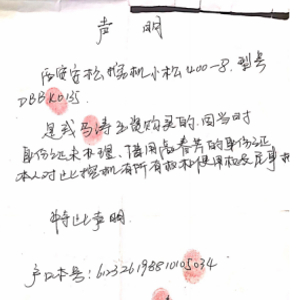 声 明
小松挖机小松400-8.型号
DBBK0135.
是我马涛出资购买的.因当时
身份证未办理.借用高春芳的身份证
本人对此挖机有所有权和使用权及
特此声明.
户口本号:612326198810105034